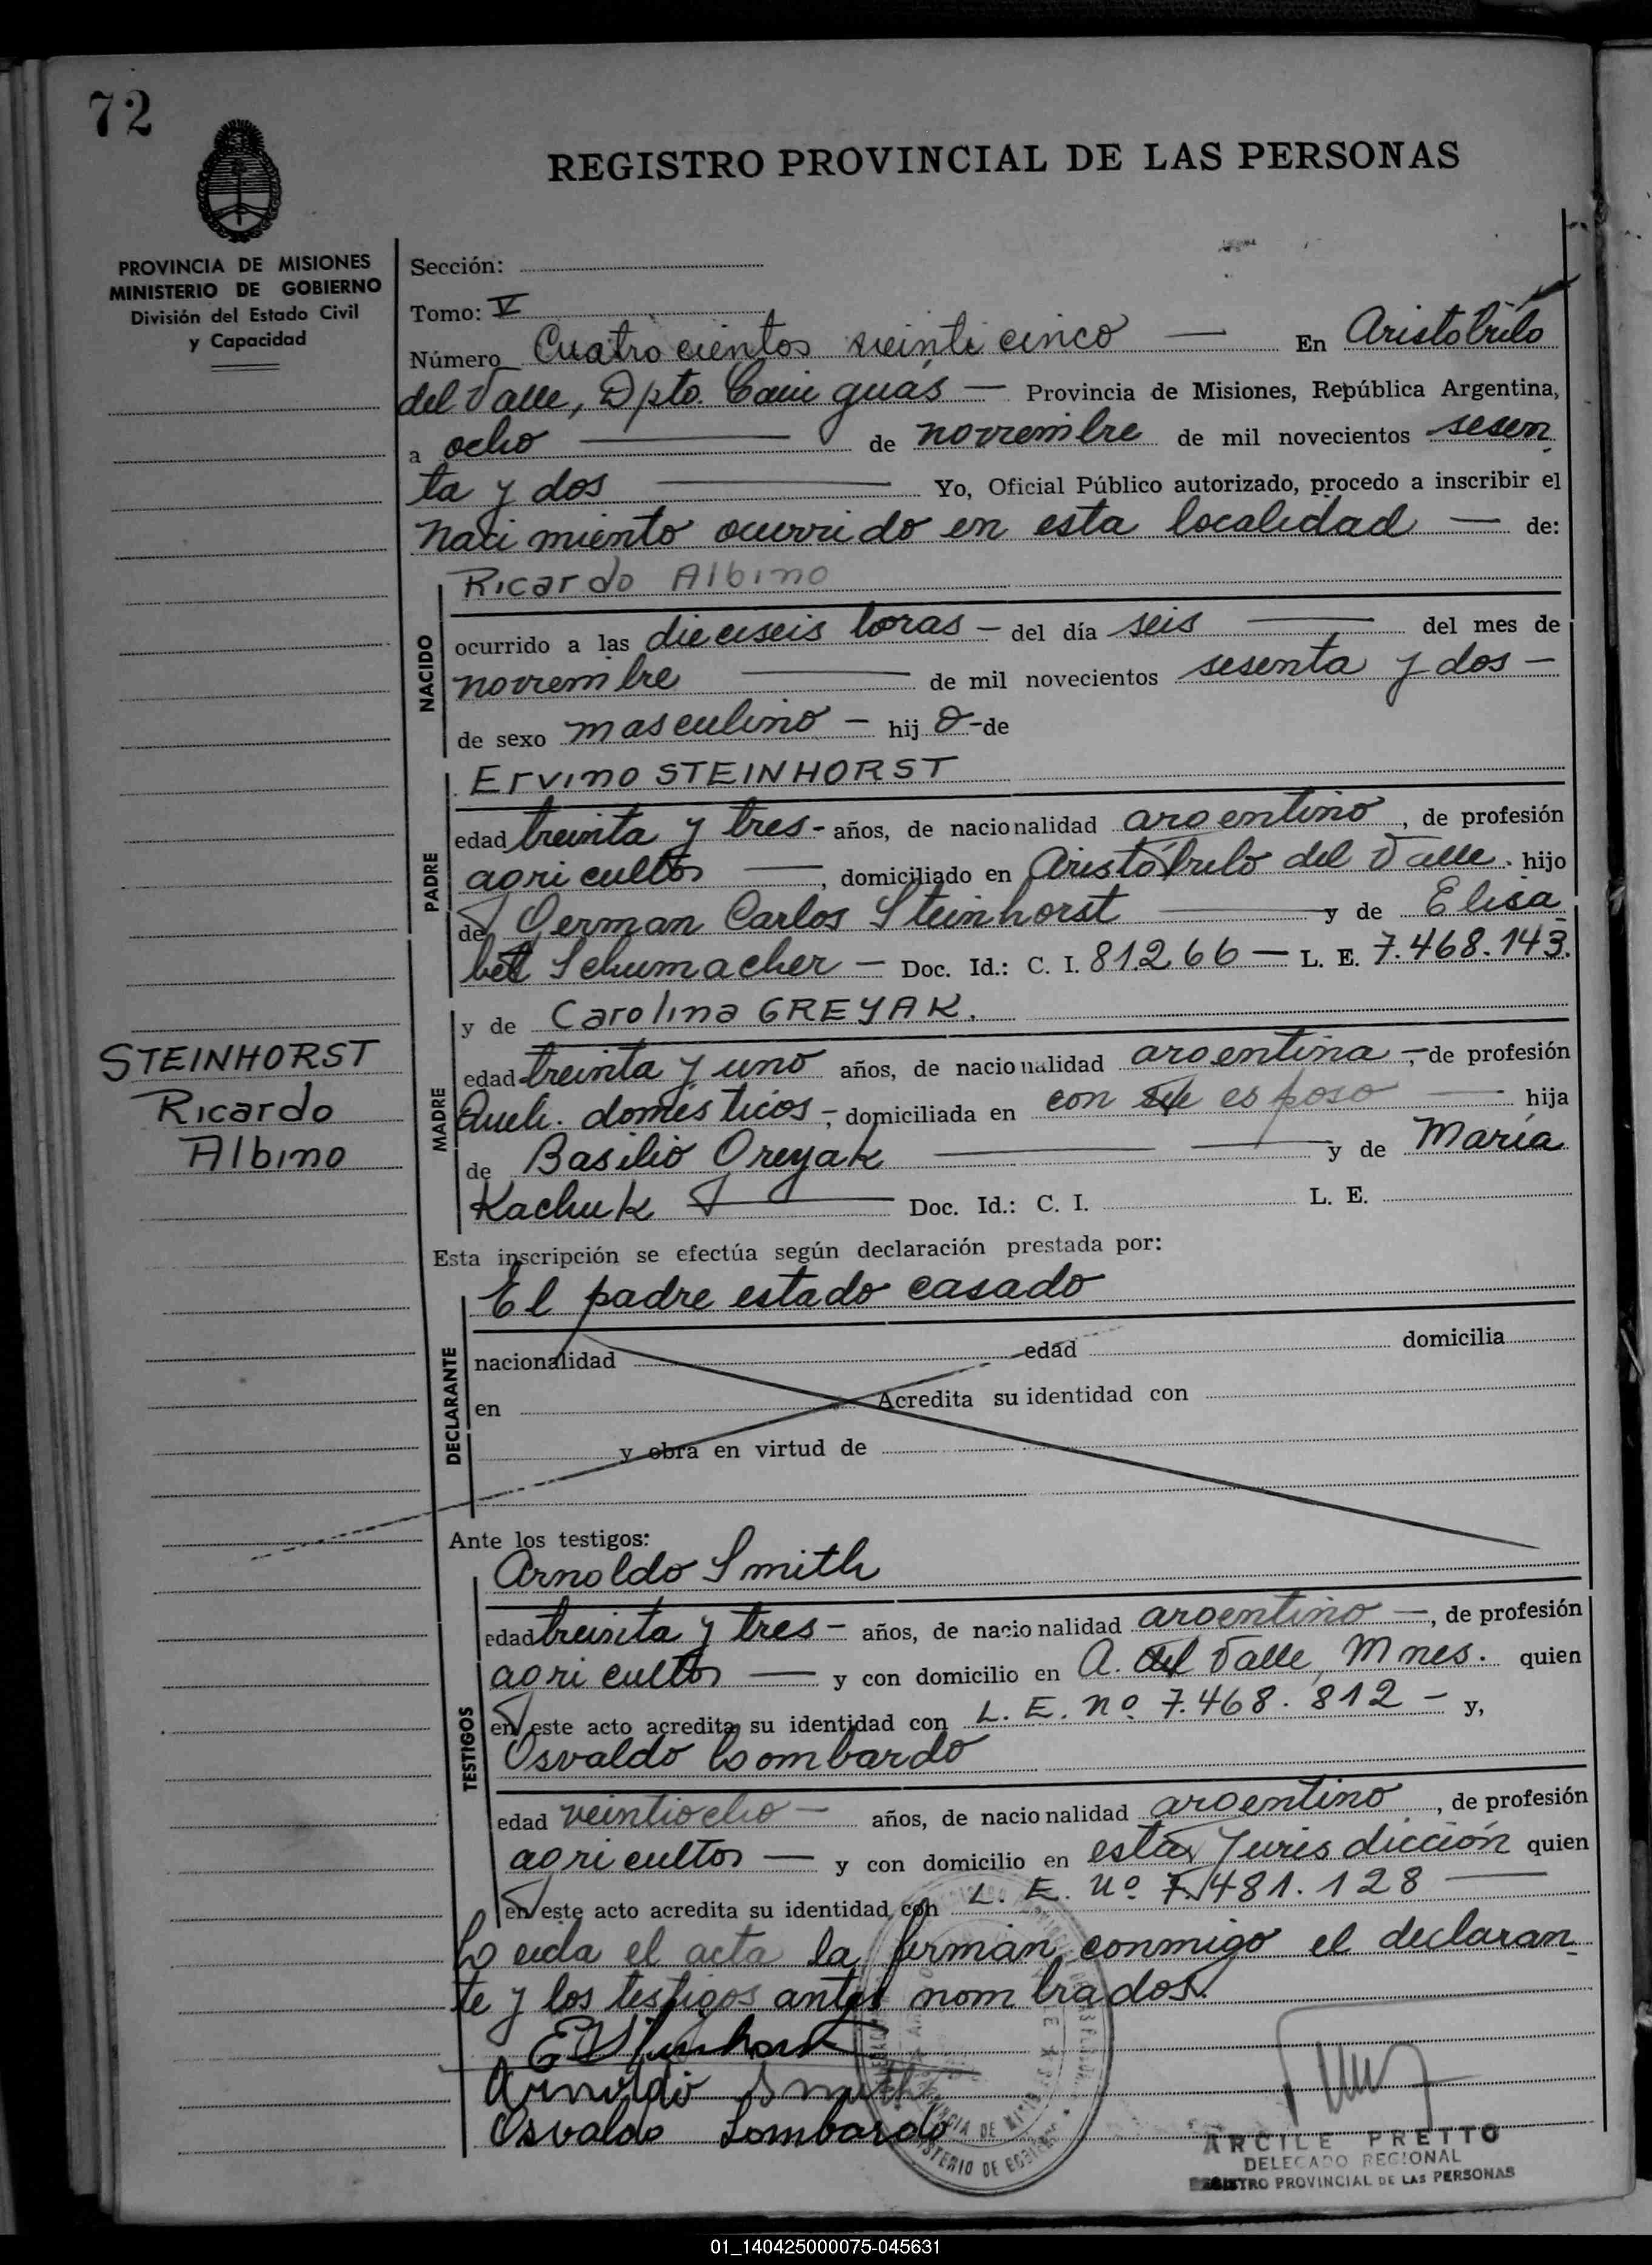 72
REGISTRO PROVINCIAL DE LAS PERSONAS
PROVINCIA DE MISIONES
MINISTERIO DE GOBIERNO
División del Estado Civil
y Capacidad
Sección:
Tomo: V
Número Cuatro cientos veinti cinco — En Aristóbulo
del Valle, Dpto. Cain guás — Provincia de Misiones, República Argentina,
a ocho — de noviembre de mil novecientos sesen
ta y dos — Yo, Oficial Público autorizado, procedo a inscribir el
naci miento ocurrido en esta localidad — de:
NACIDO
Ricardo Albino
ocurrido a las dieciseis horas — del día seis — del mes de
noviembre — de mil novecientos sesenta y dos —
de sexo masculino — hij o - de
PADRE
Ervino STEINHORST
edad treinta y tres - años, de nacionalidad argentino, de profesión
agricultor —, domiciliado en Aristóbulo del Valle. hijo
de German Carlos Steinhorst — y de Elisa
bet Schumacher — Doc. Id.: C. I. 81.266 — L. E. 7.468.143.
MADRE
y de Carolina GREYAK.
edad treinta y uno años, de nacionalidad argentina -, de profesión
Queh. domésticos -, domiciliada en con su esposo — hija
de Basilio Greyak — y de María
Kachuk — Doc. Id.: C. I. L. E.
STEINHORST
Ricardo
Albino
Esta inscripción se efectúa según declaración prestada por:
DECLARANTE
El padre estado casado
nacionalidad edad domicilia
en Acredita su identidad con
y obra en virtud de
Ante los testigos:
TESTIGOS
Arnoldo Smith
edad treinta y tres - años, de nacionalidad argentino —, de profesión
agricultor — y con domicilio en A. del Valle, Mnes. quien
en este acto acredita su identidad con L. E. nº 7.468.812 - y,
Osvaldo Lombardo
edad veintiocho — años, de nacionalidad argentino, de profesión
agricultor — y con domicilio en esta Jurisdicción quien
en este acto acredita su identidad con L. E. Nº 7.481.128 —
Leida el acta la firman conmigo el declaran
te y los testigos antes nombrados.
E Steinhorst
Arnoldo Smith
Osvaldo Lombardo
ARCILE PRETTO
DELEGADO REGIONAL
REGISTRO PROVINCIAL DE LAS PERSONAS
01_140425000075-045631